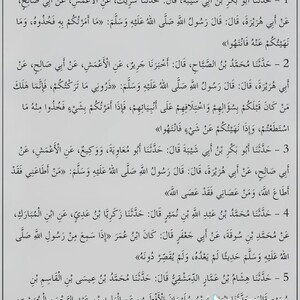 1 - حَدَّثَنَا أَبُو بَكْرِ بْنُ أَبِي شَيْبَةَ، قَالَ: حَدَّثَنَا شَرِيكٌ، عَنِ الْأَعْمَشِ، عَنْ أَبِي صَالِحٍ،
عَنْ أَبِي هُرَيْرَةَ، قَالَ: قَالَ رَسُولُ اللَّهِ صَلَّى اللهُ عَلَيْهِ وَسَلَّمَ: «مَا أَمَرْتُكُمْ بِهِ فَخُذُوهُ، وَمَا
نَهَيْتُكُمْ عَنْهُ فَانْتَهُوا»
2 - حَدَّثَنَا مُحَمَّدُ بْنُ الصَّبَّاحِ، قَالَ: أَخْبَرَنَا جَرِيرٌ، عَنِ الْأَعْمَشِ، عَنْ أَبِي صَالِحٍ، عَنْ
أَبِي هُرَيْرَةَ، قَالَ: قَالَ رَسُولُ اللَّهِ صَلَّى اللهُ عَلَيْهِ وَسَلَّمَ: «ذَرُونِي مَا تَرَكْتُكُمْ، فَإِنَّمَا هَلَكَ
مَنْ كَانَ قَبْلَكُمْ بِسُؤَالِهِمْ وَاخْتِلَافِهِمْ عَلَى أَنْبِيَائِهِمْ، فَإِذَا أَمَرْتُكُمْ بِشَيْءٍ فَخُذُوا مِنْهُ مَا
اسْتَطَعْتُمْ، وَإِذَا نَهَيْتُكُمْ عَنْ شَيْءٍ فَانْتَهُوا»
3 - حَدَّثَنَا أَبُو بَكْرِ بْنُ أَبِي شَيْبَةَ قَالَ: حَدَّثَنَا أَبُو مُعَاوِيَةَ، وَوَكِيعٌ، عَنِ الْأَعْمَشِ، عَنْ
أَبِي صَالِحٍ، عَنْ أَبِي هُرَيْرَةَ، قَالَ: قَالَ رَسُولُ اللَّهِ صَلَّى اللهُ عَلَيْهِ وَسَلَّمَ: «مَنْ أَطَاعَنِي فَقَدْ
أَطَاعَ اللَّهَ، وَمَنْ عَصَانِي فَقَدْ عَصَى اللَّهَ»
4 - حَدَّثَنَا مُحَمَّدُ بْنُ عَبْدِ اللَّهِ بْنِ نُمَيْرٍ قَالَ: حَدَّثَنَا زَكَرِيَّا بْنُ عَدِيٍّ، عَنِ ابْنِ الْمُبَارَكِ،
عَنْ مُحَمَّدِ بْنِ سُوقَةَ، عَنْ أَبِي جَعْفَرٍ قَالَ: كَانَ ابْنُ عُمَرَ «إِذَا سَمِعَ مِنْ رَسُولِ اللَّهِ صَلَّى
اللهُ عَلَيْهِ وَسَلَّمَ حَدِيثًا لَمْ يَعْدُهُ، وَلَمْ يُقَصِّرْ دُونَهُ»
5 - حَدَّثَنَا هِشَامُ بْنُ عَمَّارٍ الدِّمَشْقِيُّ قَالَ: حَدَّثَنَا مُحَمَّدُ بْنُ عِيسَى بْنِ الْقَاسِمِ بْنِ